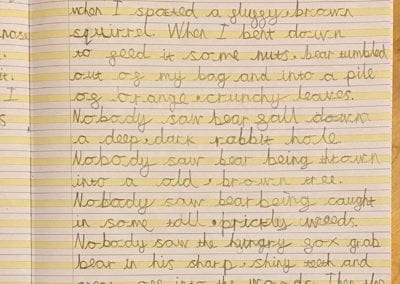 nose
it.
I
s
when I spotted a gluggy, brown
squirrel. When I bent down
to geed it some nuts, bear tumbled
out og my bag and into a pile
og orange, crunchy leaves.
Nobody saw bear gall down
a deep, dark rabbit hole
Nobody saw bear being thrown
into a old, brown tree.
Nobody saw bear being caught
in some tall, prickly weeds.
Nobody saw the hungry gox grab
bear in his sharp, shiny teeth and
into the Then